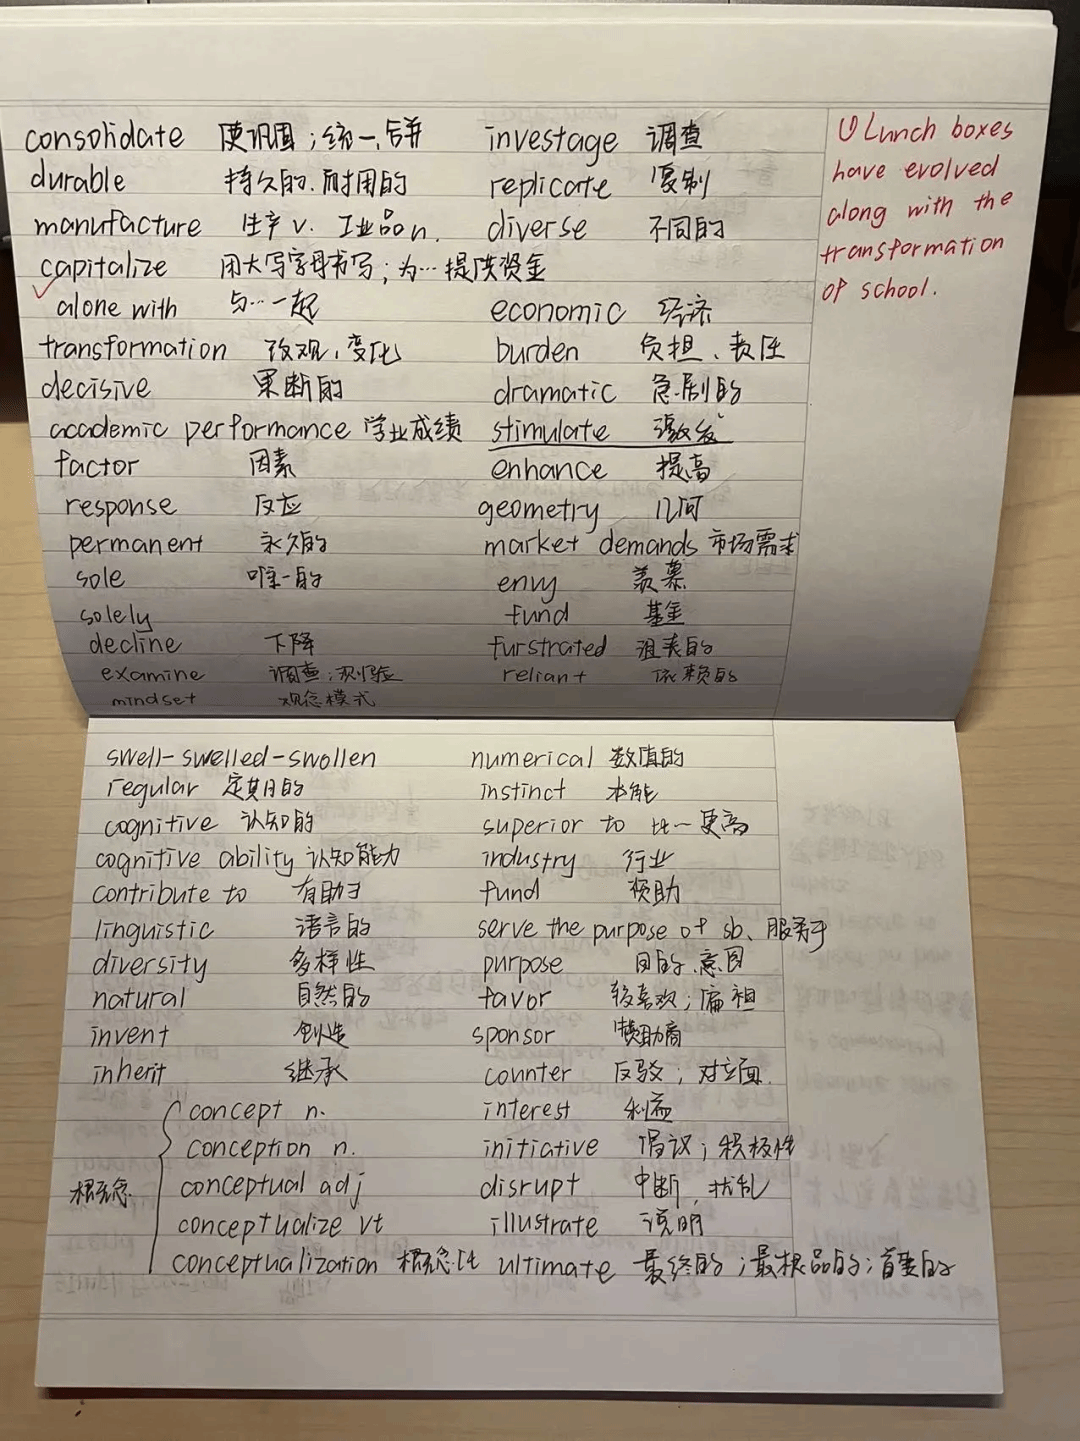 consolidate 使巩固；统一、合并 investage 调查
durable 持久的、耐用的 replicate 复制
manufacture 生产 v. 工业品 n. diverse 不同的
capitalize 用大写字母书写；为…提供资金
alone with 与…一起 economic 经济
transformation 改观、变化 burden 负担、责任
decisive 果断的 dramatic 急剧的
academic performance 学业成绩 stimulate 激发
factor 因素 enhance 提高
response 反应 geometry 几何
permanent 永久的 market demands 市场需求
sole 唯一的 envy 羡慕
solely fund 基金
decline 下降 furstrated 沮丧的
examine 调查；测验 reliant 依赖的
mindset 观念模式
① Lunch boxes
have evolved
along with the
transformation
of school.
swell-swelled-swollen numerical 数值的
regular 定期的 instinct 本能
cognitive 认知的 superior to 比一更高
cognitive ability 认知能力 industry 行业
contribute to 有助于 fund 资助
linguistic 语言的 serve the purpose of sb、服务于
diversity 多样性 purpose 目的、意图
natural 自然的 favor 较喜欢；偏袒
invent 创造 sponsor 赞助商
inherit 继承 counter 反驳；对立面
concept n. interest 利益
conception n. initiative 倡议；积极性
概念 conceptual adj disrupt 中断，扰乱
conceptualize vt illustrate 说明
conceptualization 概念化 ultimate 最终的；最根品的；首要的